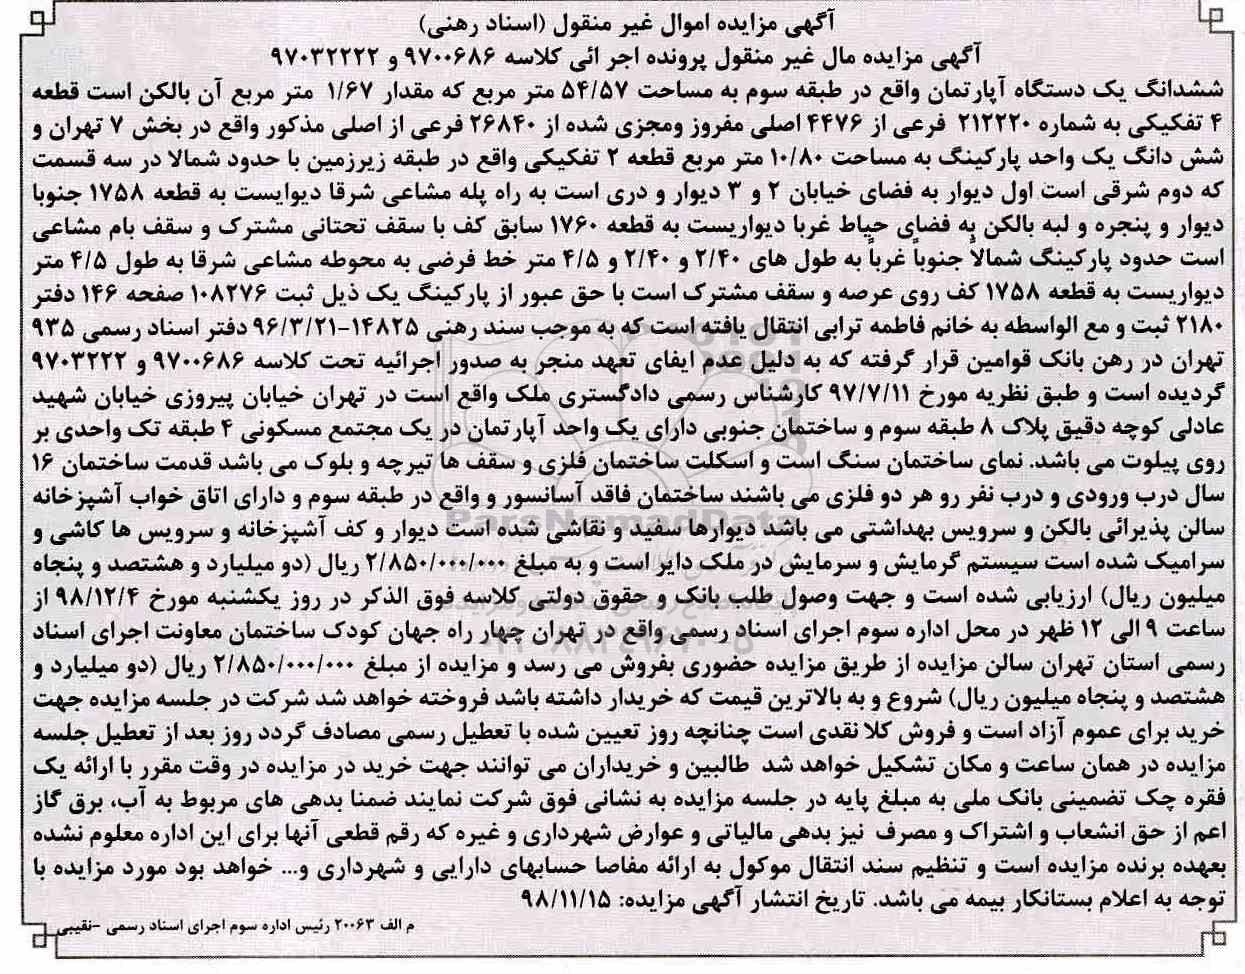 آگهی مزایده اموال غیر منقول (اسناد رهنی)
آگهی مزایده مال غیر منقول پرونده اجر ائی کلاسه ۹۷۰۰۶۸۶ و ۹۷۰۳۲۲۲۲
ششدانگ یک دستگاه آپارتمان واقع در طبقه سوم به مساحت ۵۴/۵۷ متر مربع که مقدار ۱/۶۷ متر مربع آن بالکن است قطعه
۴ تفکیکی به شماره ۲۱۲۲۲۰ فرعی از ۴۴۷۶ اصلی مفروز ومجزی شده از ۲۶۸۴۰ فرعی از اصلی مذکور واقع در بخش ۷ تهران و
شش دانگ یک واحد پارکینگ به مساحت ۱۰/۸۰ متر مربع قطعه ۲ تفکیکی واقع در طبقه زیرزمین با حدود شمالا در سه قسمت
که دوم شرقی است اول دیوار به فضای خیابان ۲ و ۳ دیوار و دری است به راه پله مشاعی شرقا دیوایست به قطعه ۱۷۵۸ جنوبا
دیوار و پنجره و لبه بالکن به فضای حیاط غربا دیواریست به قطعه ۱۷۶۰ سابق کف با سقف تحتانی مشترک و سقف بام مشاعی
است حدود پارکینگ شمالاً جنوباً غرباً به طول های ۲/۴۰ و ۲/۴۰ و ۴/۵ متر خط فرضی به محوطه مشاعی شرقا به طول ۴/۵ متر
دیواریست به قطعه ۱۷۵۸ کف روی عرصه و سقف مشترک است با حق عبور از پارکینگ یک ذیل ثبت ۱۰۸۲۷۶ صفحه ۱۴۶ دفتر
۲۱۸۰ ثبت و مع الواسطه به خانم فاطمه ترابی انتقال یافته است که به موجب سند رهنی ۱۴۸۲۵-۹۶/۳/۲۱ دفتر اسناد رسمی ۹۳۵
تهران در رهن بانک قوامین قرار گرفته که به دلیل عدم ایفای تعهد منجر به صدور اجرائیه تحت کلاسه ۹۷۰۰۶۸۶ و ۹۷۰۳۲۲۲
گردیده است و طبق نظریه مورخ ۹۷/۷/۱۱ کارشناس رسمی دادگستری ملک واقع است در تهران خیابان پیروزی خیابان شهید
عادلی کوچه دقیق پلاک ۸ طبقه سوم و ساختمان جنوبی دارای یک واحد آپارتمان در یک مجتمع مسکونی ۴ طبقه تک واحدی بر
روی پیلوت می باشد. نمای ساختمان سنگ است و اسکلت ساختمان فلزی و سقف ها تیرچه و بلوک می باشد قدمت ساختمان ۱۶
سال درب ورودی و درب نفر رو هر دو فلزی می باشند ساختمان فاقد آسانسور و واقع در طبقه سوم و دارای اتاق خواب آشپزخانه
سالن پذیرائی بالکن و سرویس بهداشتی می باشد دیوارها سفید و نقاشی شده است دیوار و کف آشپزخانه و سرویس ها کاشی و
سرامیک شده است سیستم گرمایش و سرمایش در ملک دایر است و به مبلغ ۲/۸۵۰/۰۰۰/۰۰۰ ریال (دو میلیارد و هشتصد و پنجاه
میلیون ریال) ارزیابی شده است و جهت وصول طلب بانک و حقوق دولتی کلاسه فوق الذکر در روز یکشنبه مورخ ۹۸/۱۲/۴ از
ساعت ۹ الی ۱۲ ظهر در محل اداره سوم اجرای اسناد رسمی واقع در تهران چهار راه جهان کودک ساختمان معاونت اجرای اسناد
رسمی استان تهران سالن مزایده از طریق مزایده حضوری بفروش می رسد و مزایده از مبلغ ۲/۸۵۰/۰۰۰/۰۰۰ ریال (دو میلیارد و
هشتصد و پنجاه میلیون ریال) شروع و به بالاترین قیمت که خریدار داشته باشد فروخته خواهد شد شرکت در جلسه مزایده جهت
خرید برای عموم آزاد است و فروش کلا نقدی است چنانچه روز تعیین شده با تعطیل رسمی مصادف گردد روز بعد از تعطیل جلسه
مزایده در همان ساعت و مکان تشکیل خواهد شد طالبین و خریداران می توانند جهت خرید در مزایده در وقت مقرر با ارائه یک
فقره چک تضمینی بانک ملی به مبلغ پایه در جلسه مزایده به نشانی فوق شرکت نمایند ضمنا بدهی های مربوط به آب، برق گاز
اعم از حق انشعاب و اشتراک و مصرف نیز بدهی مالیاتی و عوارض شهرداری و غیره که رقم قطعی آنها برای این اداره معلوم نشده
بعهده برنده مزایده است و تنظیم سند انتقال موکول به ارائه مفاصا حسابهای دارایی و شهرداری و... خواهد بود مورد مزایده با
توجه به اعلام بستانکار بیمه می باشد. تاریخ انتشار آگهی مزایده: ۹۸/۱۱/۱۵
م الف ۲۰۰۶۳ رئیس اداره سوم اجرای اسناد رسمی -نقیبی
ParsNamadData